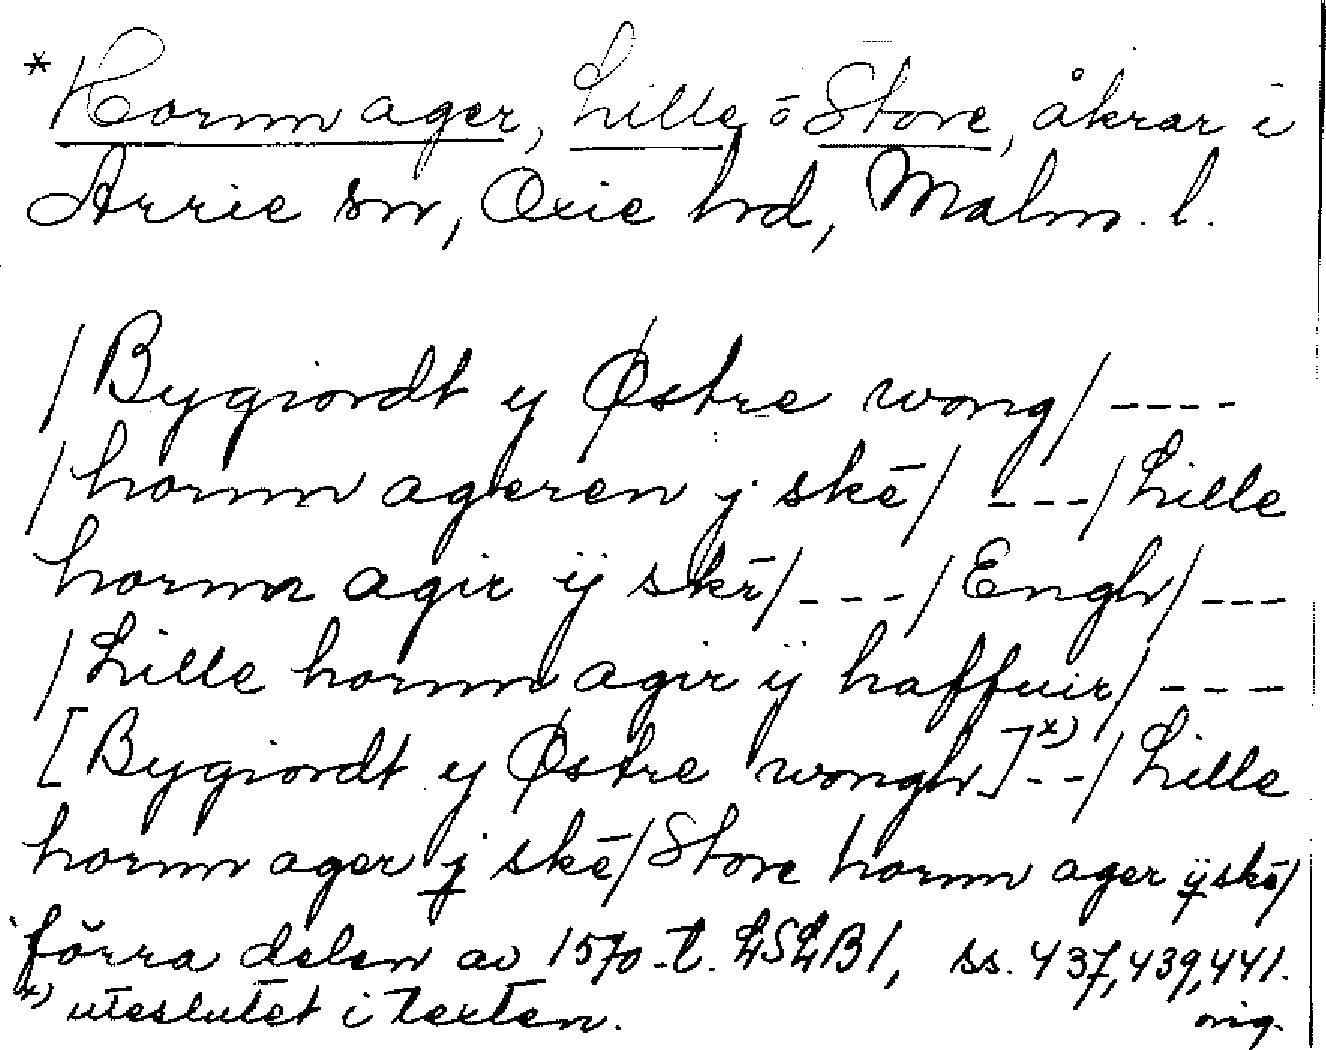 * Hornn ager, Lille o Store, åkrar i
Arrie sn, Oxie hd, Malm. l.
/Bygiordt y Østre wong/ ----
/hornn ageren j skē/ ---/Lille
hornn agir ij skē/ ---/Engh/ ---
/Lille hornn agir ij haffuir/ ---
[Bygiordt y Østre wongh]x) --/Lille
hornn ager j skē/Store hornn ager ij skē/
förra delen av 1570-t. LSLB1, ss. 437, 439, 441.
x) uteslutet i texten. orig.